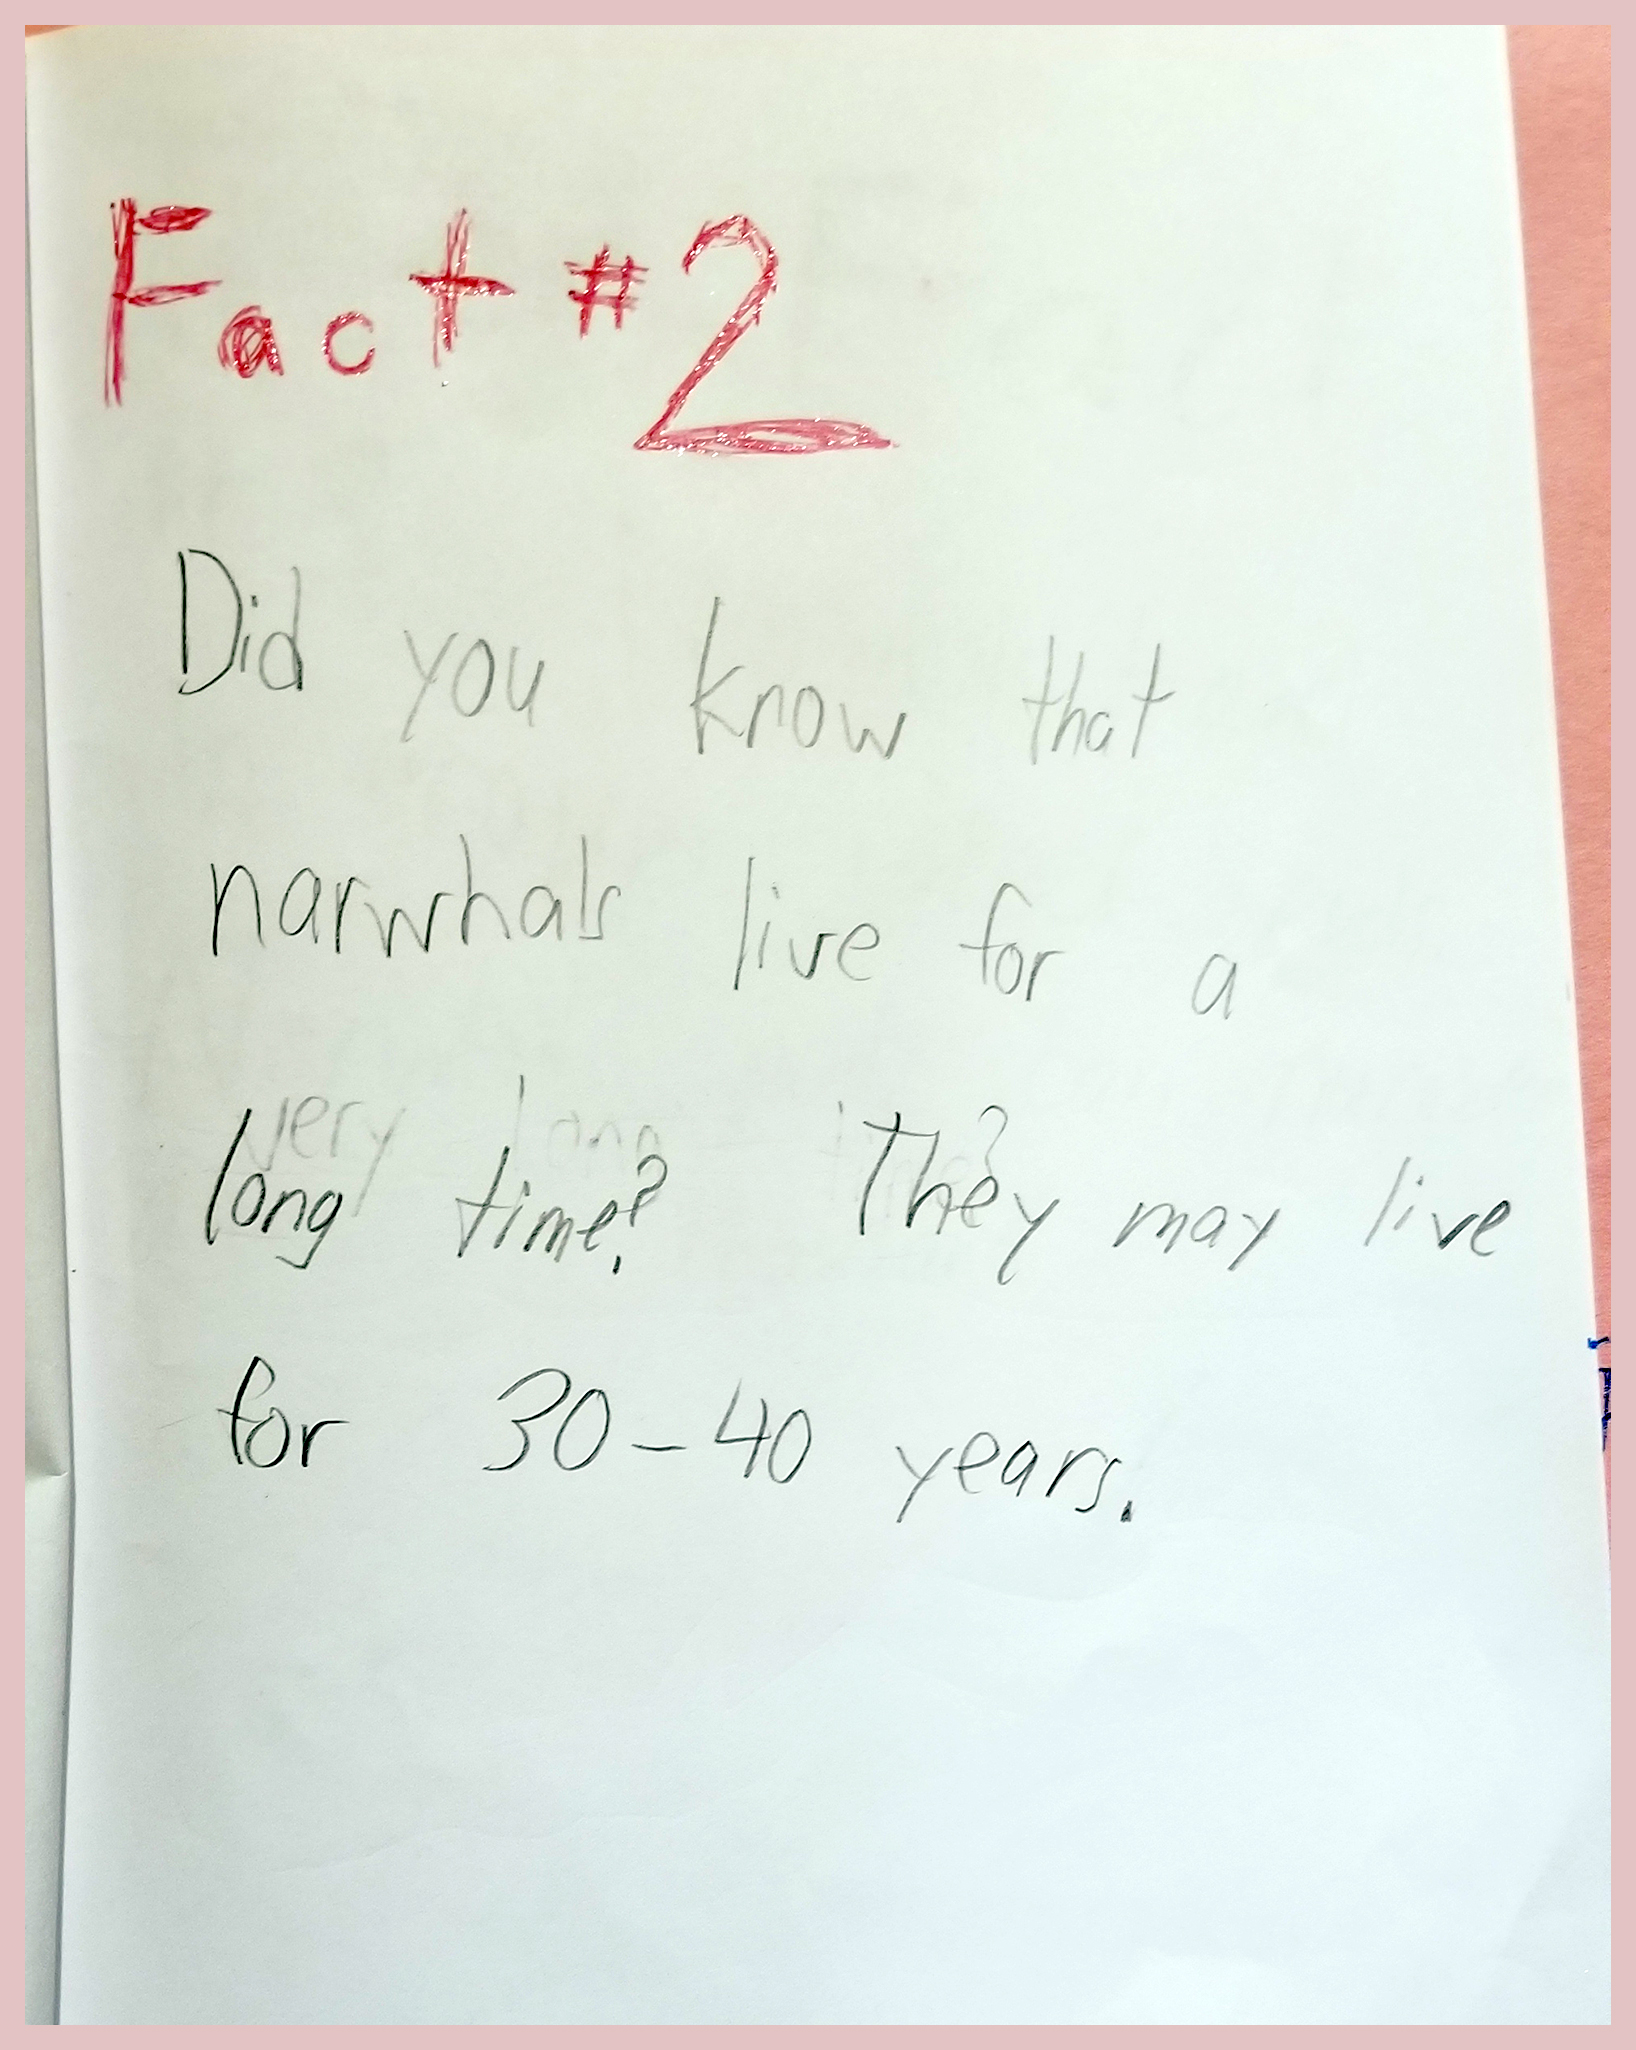 Fact #2
Did you know that
narwhals live for a
long time? They may live
for 30-40 years.